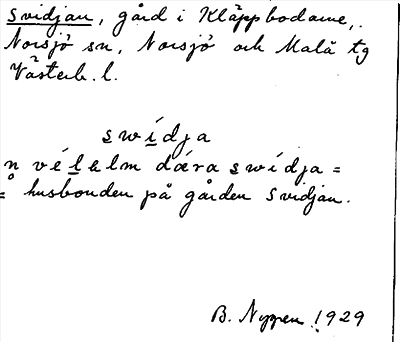 Svidjan, gård i Kläppbodarne,
Norsjö sn, Norsjö och Malå tg
Västerb. l.
swídja
n vélelm dæra swídja =
= husbonden på gården Svidjan.
B. Nygren 1929